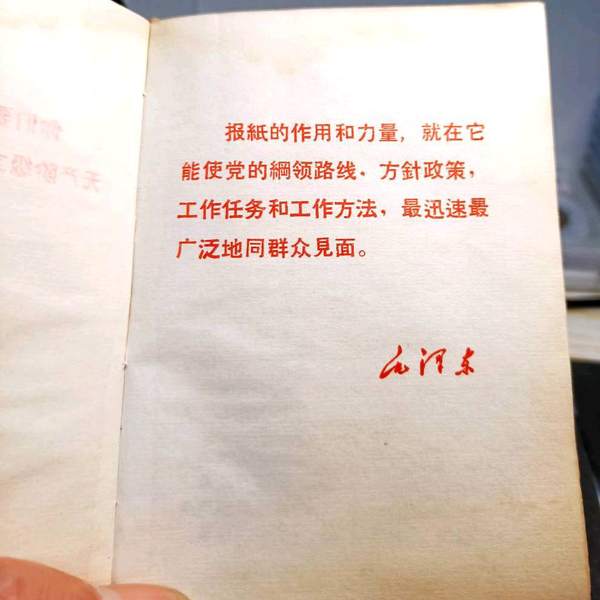 报紙的作用和力量，就在它
能使党的綱领路线、方針政策，
工作任务和工作方法，最迅速最
广泛地同群众見面。
毛泽东